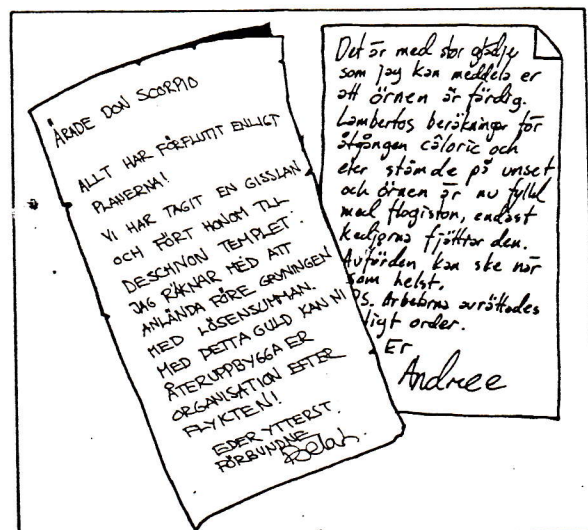 ÄRADE DON SCORPIO
ALLT HAR FÖRFLUTIT ENLIGT
PLANERNA!
VI HAR TAGIT EN GISSLAN
OCH FÖRT HONOM TILL
DESCHNON TEMPLET.
JAG RÄKNAR MED ATT
ANLÄNDA FÖRE GRYNINGEN
MED LÖSENSUMMAN.
MED DETTA GULD KAN NI
ÅTERUPPBYGGA ER
ORGANISATION EFTER
FLYKTEN!
EDER YTTERST
FÖRBUNDNE
Det är med stor glädje
som jag kan meddela er
att örnen är färdig.
Lambertos beräkningar för
åtgången câloric och
eter stämde på unset
och örnen är nu fylld
med flogiston, endast
kedjorna fjättrar den.
Avfärden kan ske när
som helst.
PS. Arbetarna avrättades
ligt order.
Er
Andree